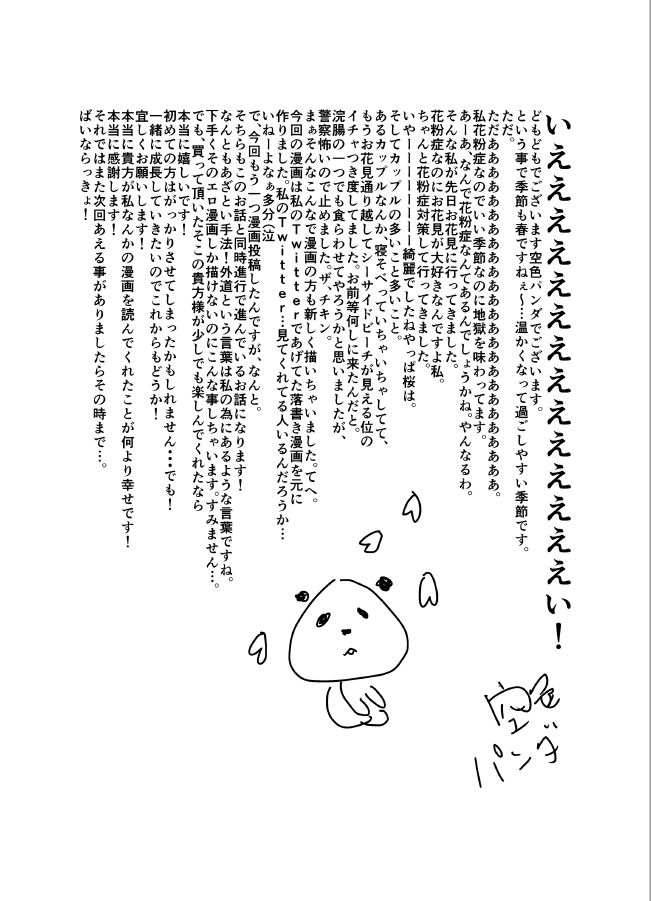 いええええええええええええええええい！
どもどもでございます空色パンダでございます。
という事で季節も春ですねぇ～…温かくなって過ごしやすい季節です。
ただ。
ただあああああああああああああああああああああああああ。
私花粉症なのでいい季節なのに地獄を味わってます。
あーあ、なんで花粉症なんてあるんでしょうかね。やんなるわ。
そんな私が先日お花見に行ってきました。
花粉症なのにお花見が大好きなんですよ私。
ちゃんと花粉症対策して行ってきました。
いやーーーーーーーー綺麗でしたねやっぱ桜は。
そしてカップルの多いこと多いこと。
あるカップルなんか、寝そべっていちゃいちゃしてて、
もうお花見通り越してシーサイドビーチが見える位の
イチャつき度してました。お前等何しに来たんだと。
浣腸の一つでも食らわせてやろうかと思いましたが、
警察怖いので止めました。ザ、チキン。
まぁそんなこんなで漫画の方も新しく描いちゃいました。てへ。
今回の漫画は私のTwitterであげてた落書き漫画を元に
作りました。私のTwitter…見てくれてる人いるんだろうか…
いねーよなぁ多分(泣
で、今回もう一つ漫画投稿したんですが、なんと。
そちらもこのお話と同時進行で進んでいるお話になります！
なんともあざとい手法！外道という言葉は私の為にあるような言葉ですね。
下手くそのエロ漫画しか描けないのにこんな事しちゃいます。すみません…。
でも、買って頂いたそこの貴方様が少しでも楽しんでくれたなら
本当に嬉しいです！
初めての方はがっかりさせてしまったかもしれません・・・でも！
一緒に成長していきたいのでこれからもどうか！
宜しくお願いします！
本当に貴方が私なんかの漫画を読んでくれたことが何より幸せです！
本当に感謝します！
それではまた次回あえる事がありましたらその時まで…。
ばいならっきょ！
空色
パンダ